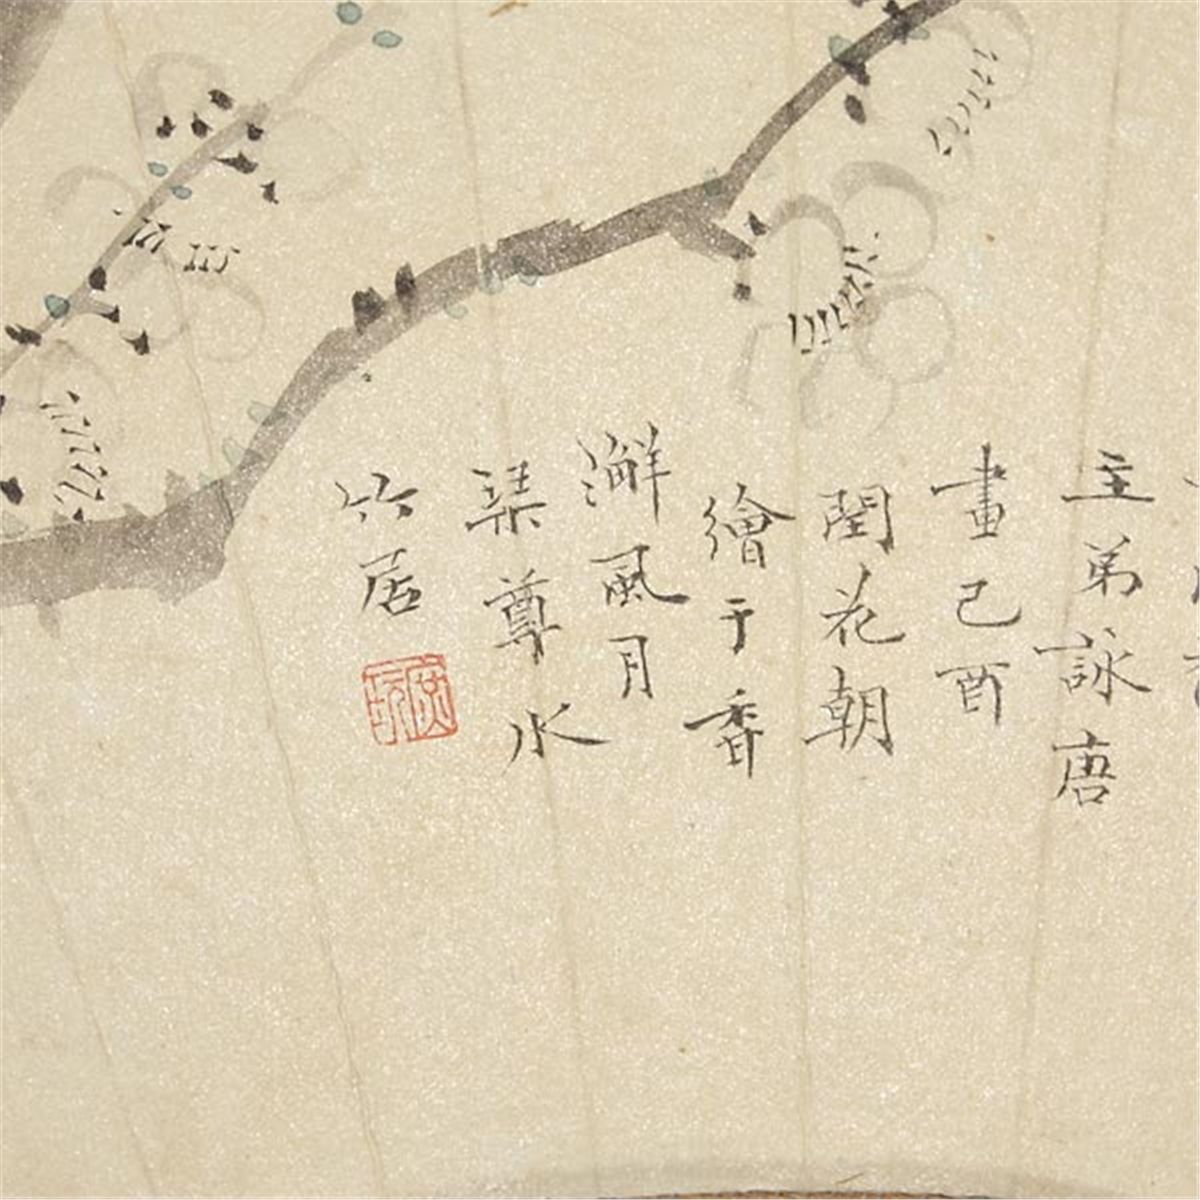 主弟詠唐
畫己酉
閏花朝
繪于香
澥風月
琹尊水
竹居